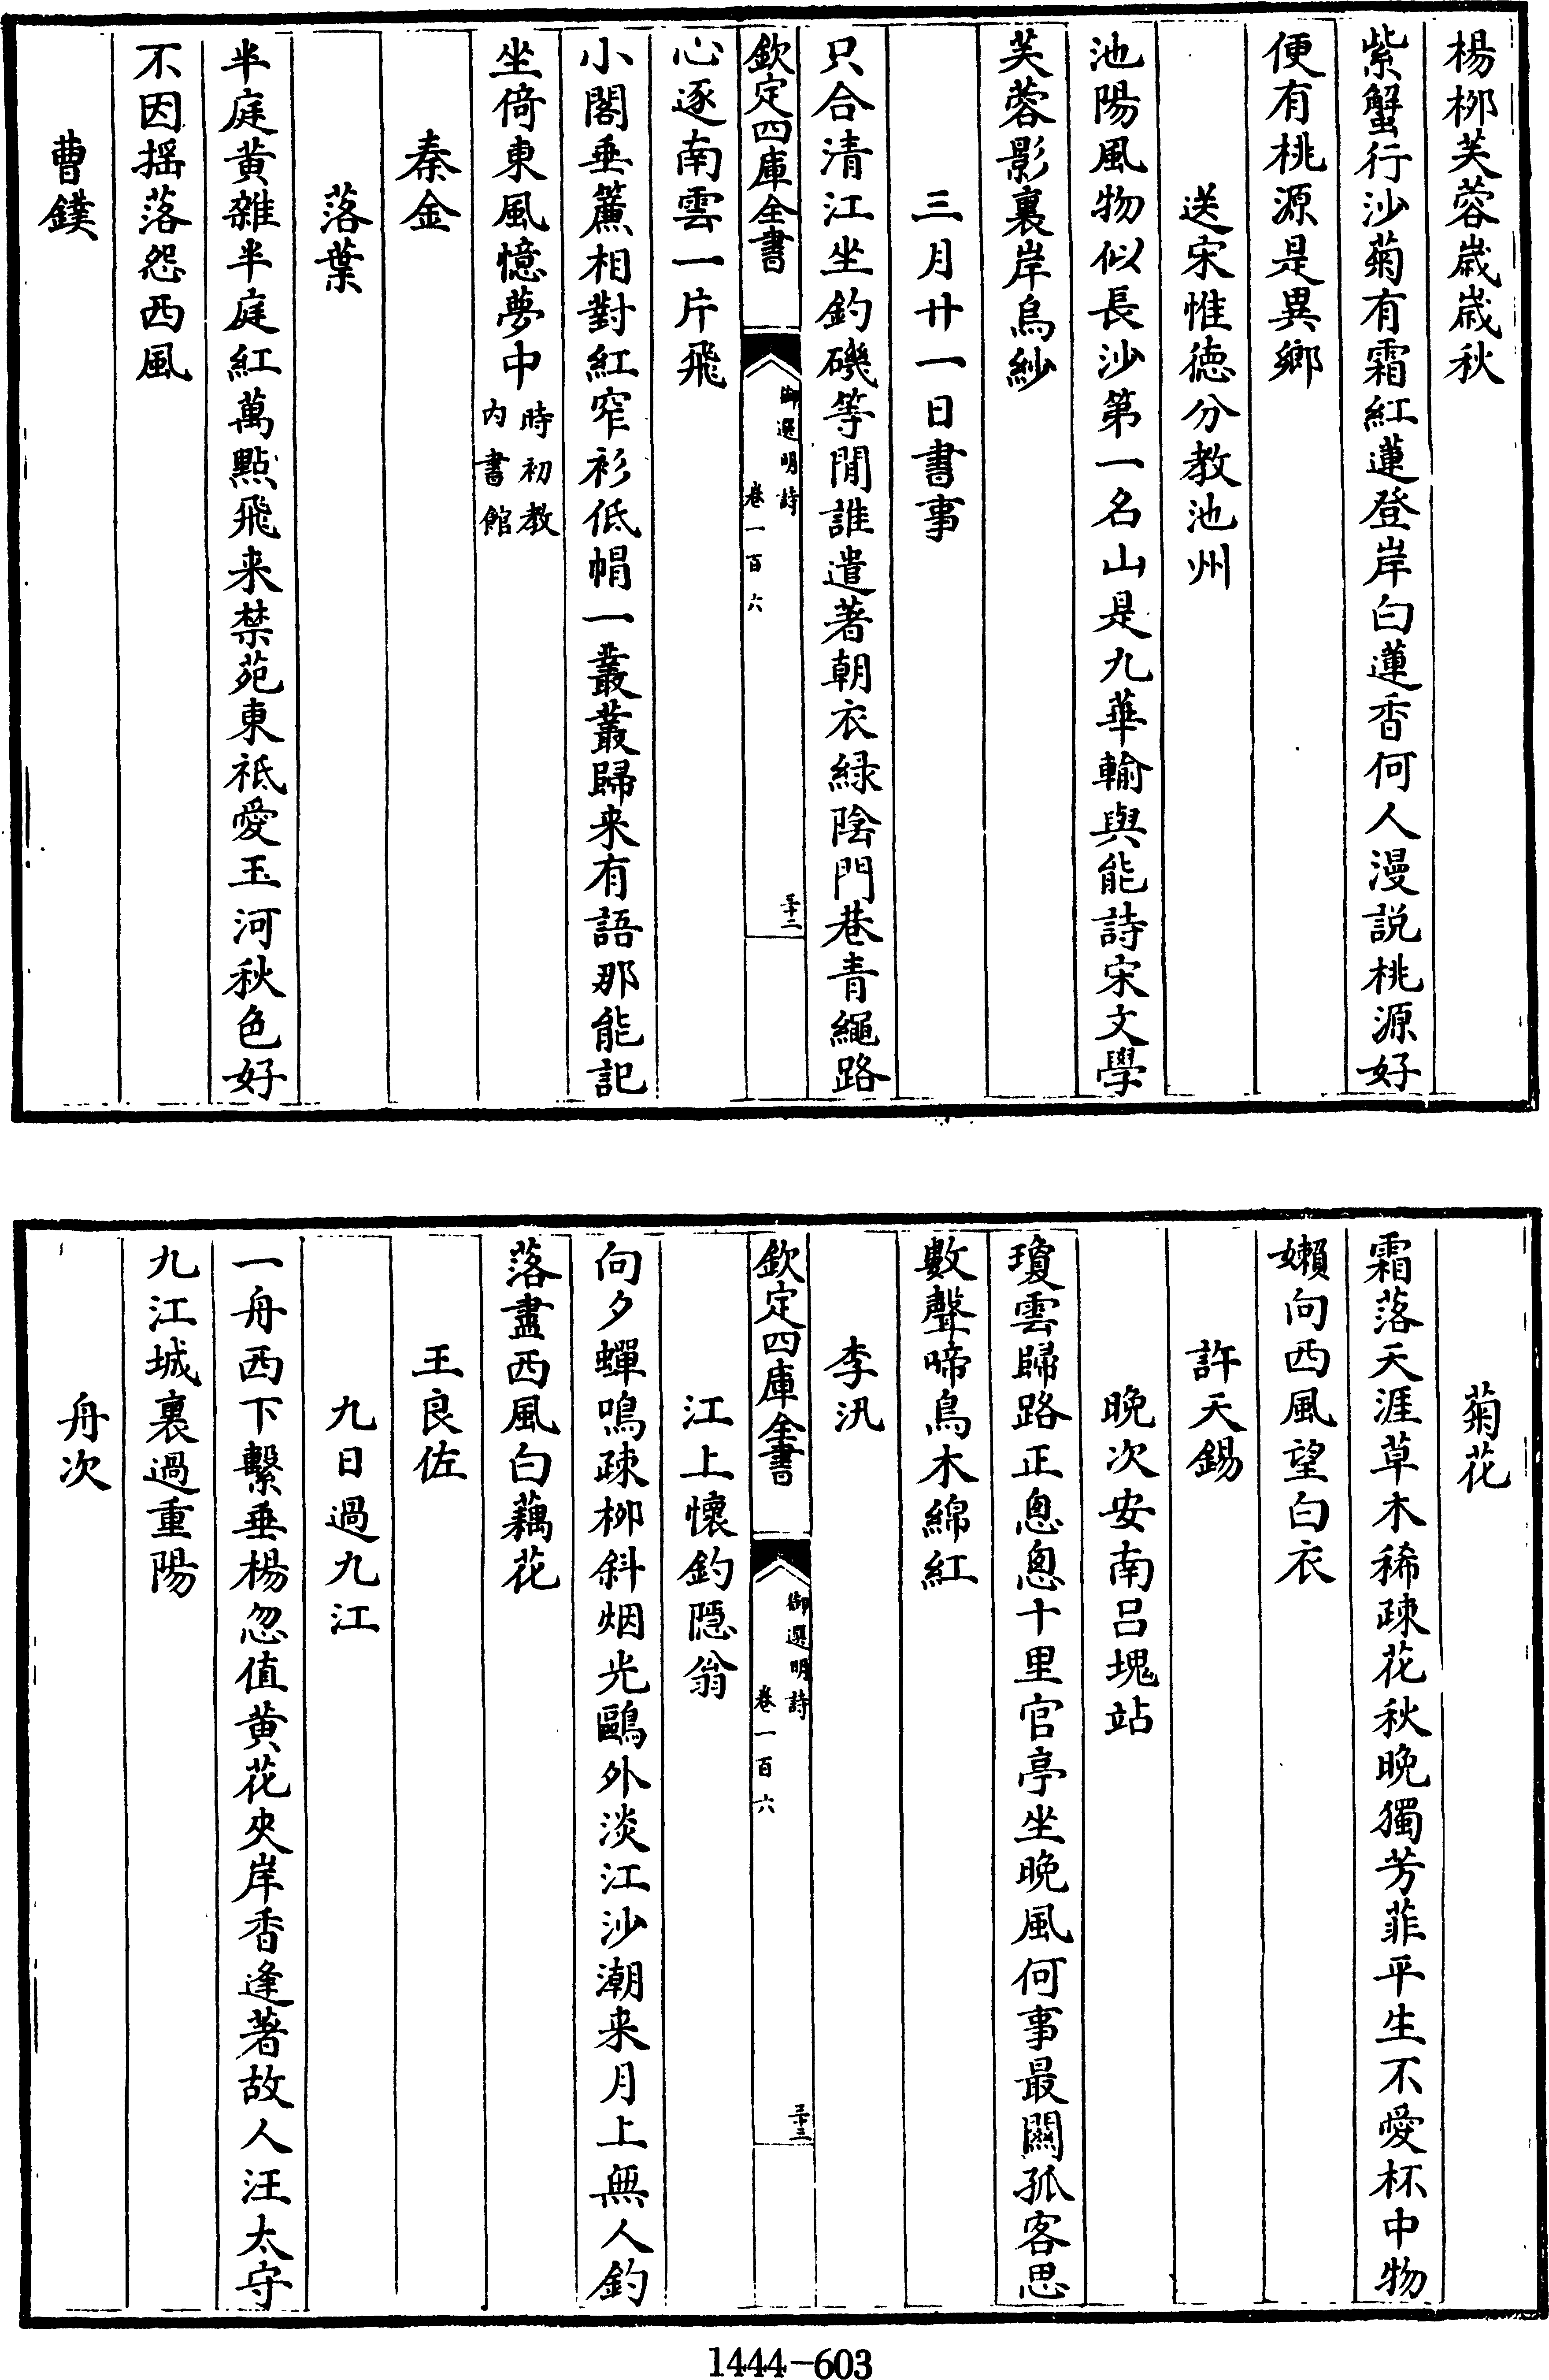 楊栁芙蓉歳歳秋
紫蟹行沙菊有霜紅蓮登岸白蓮香何人漫説桃源好
便有桃源是異鄉
送宋惟徳分教池州
池陽風物似長沙第一名山是九華輸與能詩宋文學
芙蓉影裏岸烏紗
三月廿一日書事
只合清江坐釣磯等閒誰遣著朝衣緑陰門巷青繩路
欽定四庫全書
御選明詩
卷一百六
三十二
心逐南雲一片飛
小閣垂簾相對紅窄衫低帽一叢叢歸来有語那能記
坐倚東風憶夢中時初教
内書館
秦金
落葉
半庭黄雜半庭紅萬點飛来禁苑東祗愛玉河秋色好
不因揺落怨西風
曹鏷
菊花
霜落天涯草木稀疎花秋晚獨芳菲平生不愛杯中物
嬾向西風望白衣
許天錫
晚次安南吕塊站
瓊雲歸路正悤悤十里官亭坐晚風何事最闗孤客思
數聲啼鳥木綿紅
李汎
欽定四庫全書
御選明詩
卷一百六
三十三
江上懷釣隠翁
向夕蟬鳴疎栁斜烟光鷗外淡江沙潮来月上無人釣
落盡西風白藕花
王良佐
九日過九江
一舟西下繫垂楊忽值黄花夾岸香逢著故人汪太守
九江城裏過重陽
舟次
1444-603